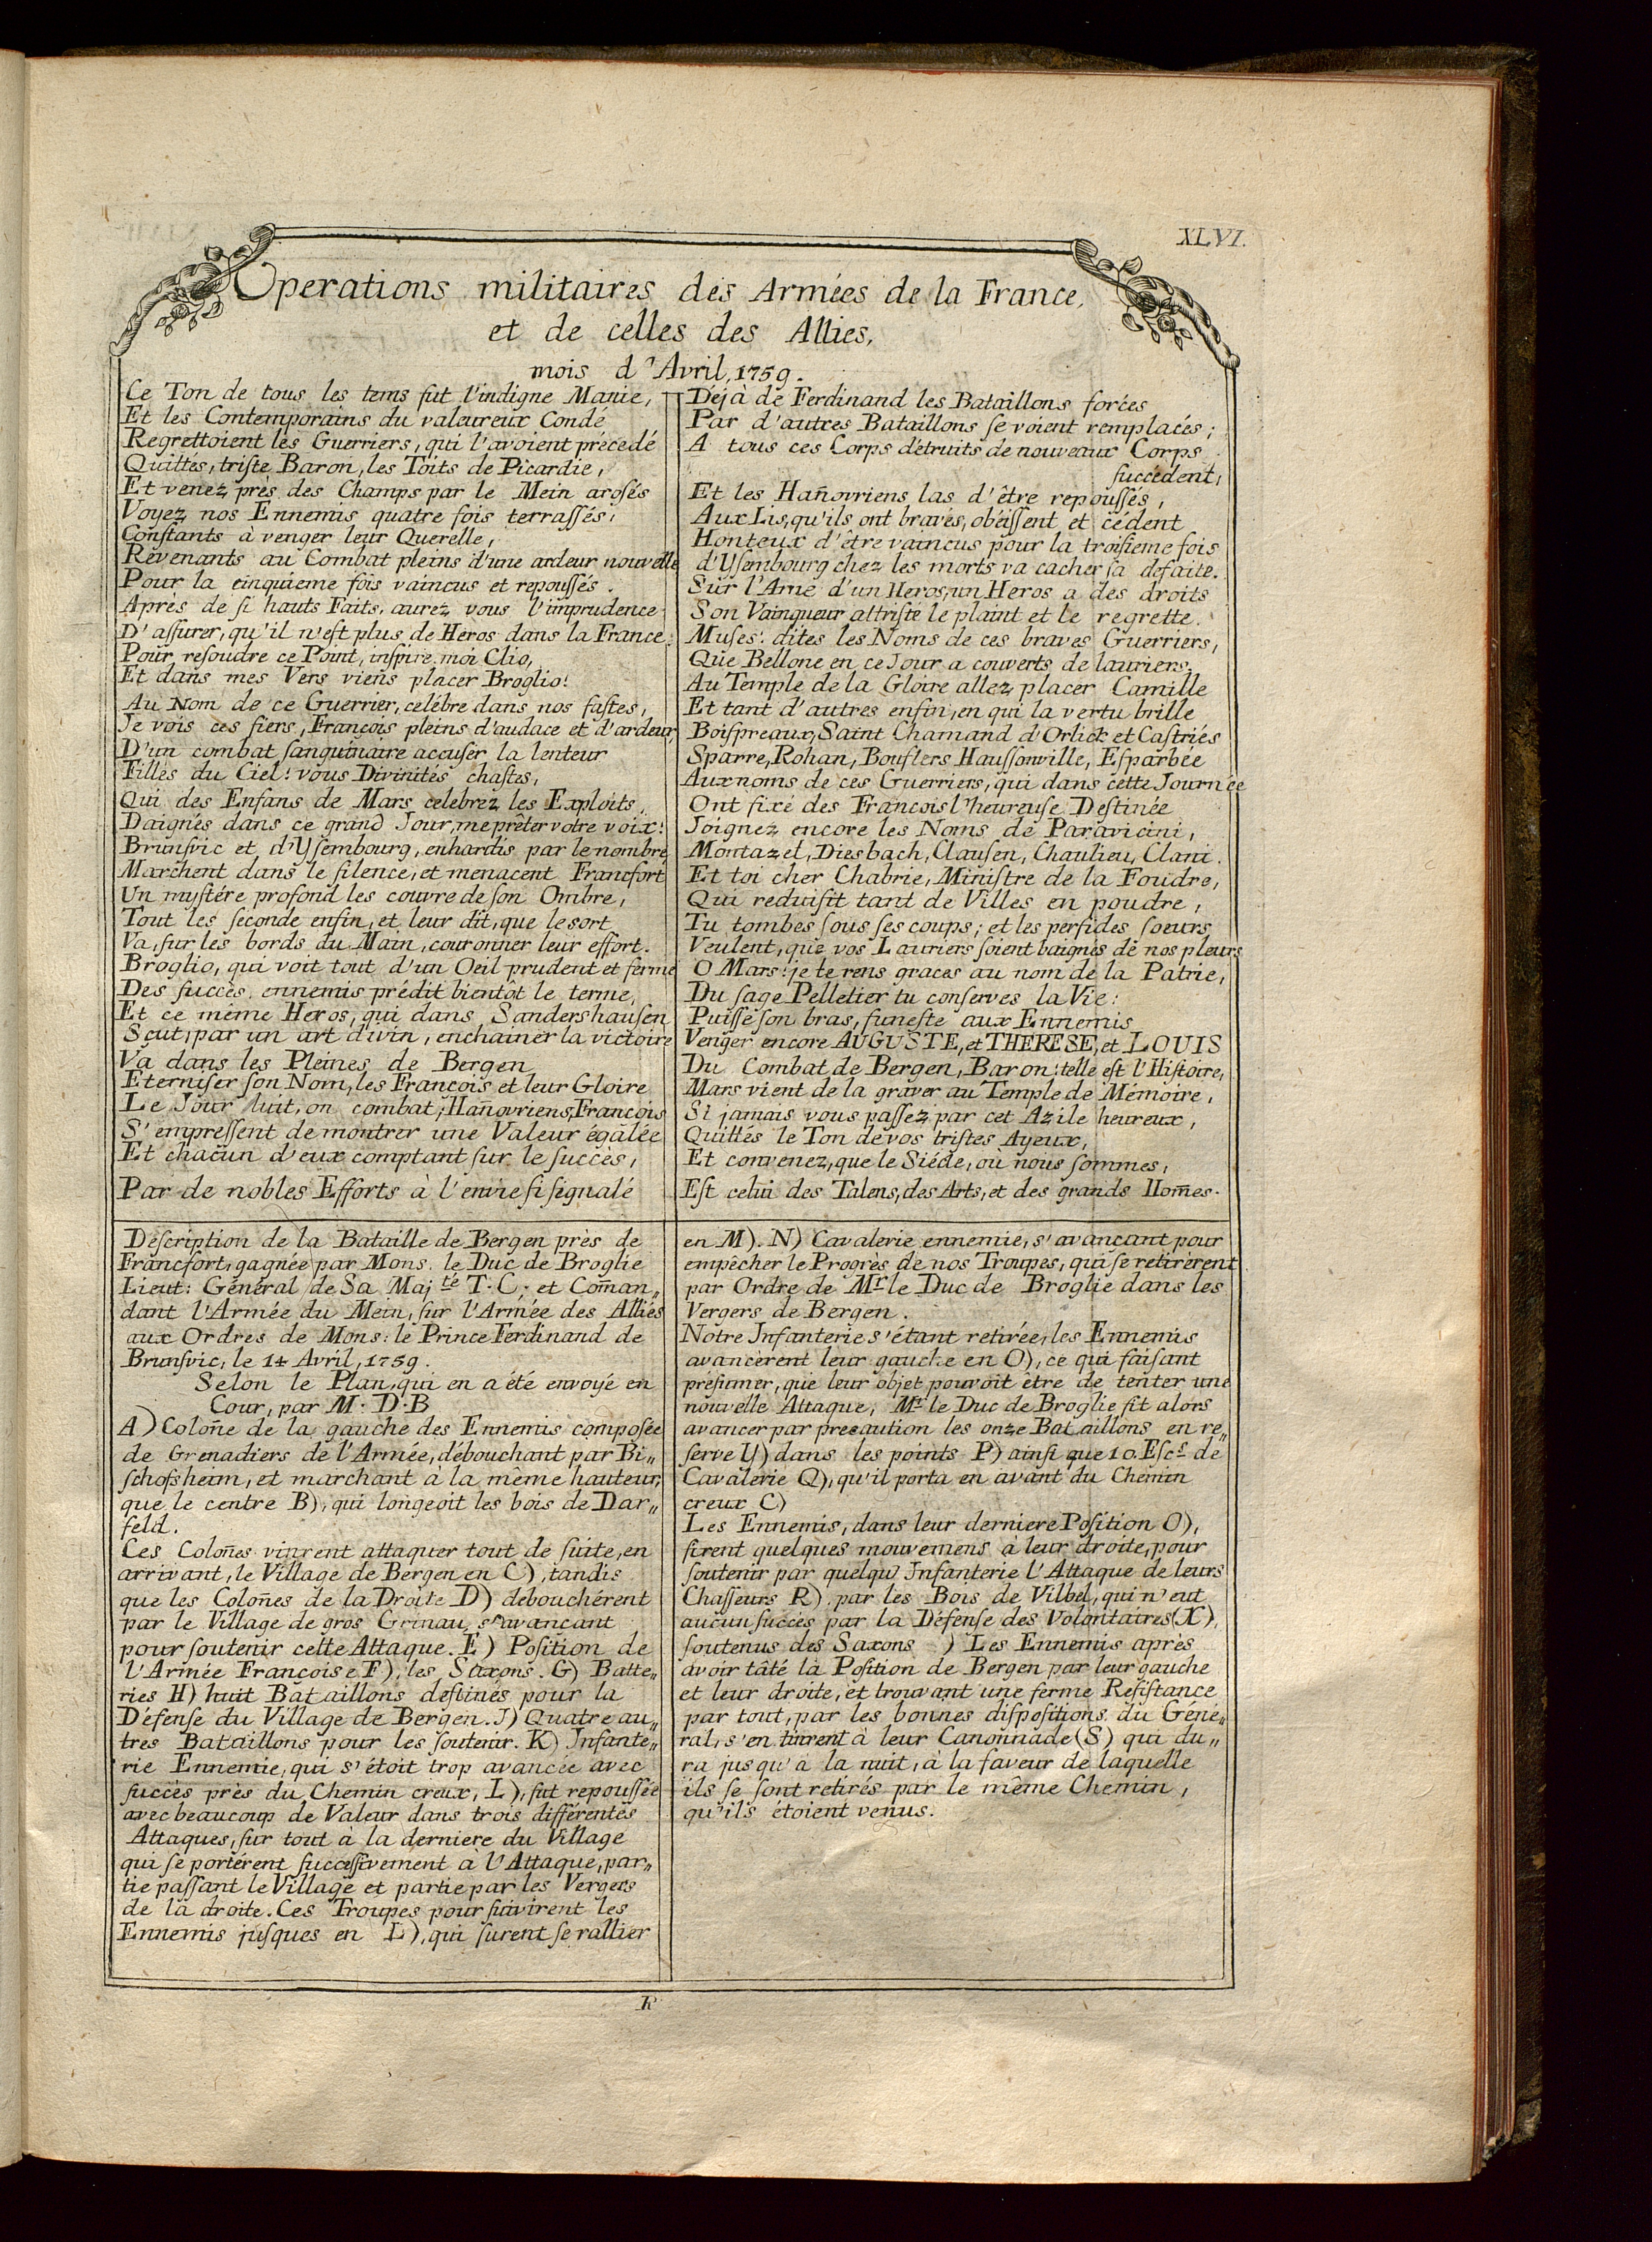 XLVI.
Operations militaires des Armées de la France,
et de celles des Allies,
mois d'Avril, 1759.
Ce Ton de tous les tems fut l'indigne Manie,
Et les Contemporains du valeureux Condé
Regrettoient les Guerriers, qui l'avoient précedé
Quittés, triste Baron, les Toits de Picardie,
Et venez près des Champs par le Mein arosés
Voyez nos Ennemis quatre fois terrassés,
Constants à venger leur Querelle,
Revenants au Combat pleins d'une ardeur nouvelle
Pour la cinquieme fois vaincus et repoussés.
Après de si hauts Faits, aurez vous l'imprudence
D'assurer, qu'il n'est plus de Heros dans la France.
Pour resoudre ce Point, inspire moi Clio,
Et dans mes Vers viens placer Broglio!
Au Nom de ce Guerrier, célébre dans nos fastes,
Je vois ces fiers, François pleins d'audace et d'ardeur,
D'un combat sanguinaire accuser la lenteur
Filles du Ciel! vous Divinités chastes,
Qui des Enfans de Mars celebrez les Exploits,
Daignés dans ce grand Jour, me prêter votre voix!
Brunsvic et d'Ysembourg, enhardis par le nombre
Marchent dans le silence, et menacent Francfort
Un mystére profond les couvre de son Ombre,
Tout les seconde enfin, et leur dit, que le sort
Va, sur les bords du Main, couronner leur effort.
Broglio, qui voit tout d'un Oeil prudent et ferme
Des succès ennemis prédit bientôt le terme,
Et ce même Heros, qui dans Sandershausen
Sçut, par un art divin, enchainer la victoire
Va dans les Pleines de Bergen
Eterniser son Nom, les François et leur Gloire
Le Jour luit, on combat; Hañovriens, François
S'empressent de montrer une Valeur égalée
Et chacun d'eux comptant sur le succès,
Par de nobles Efforts à l'envie si signalé
Déjà de Ferdinand les Bataillons forćes
Par d'autres Bataillons se voient remplacés;
A tous ces Corps détruits de nouveaux Corps
succedent,
Et les Hañovriens las d'être repoussés,
Aux Lis, qu'ils ont bravés, obéissent et cédent
Honteux d'être vaincus pour la troisieme fois
d'Ysembourg chez les morts va cacher sa defaite.
Sur l'Ame d'un Heros, un Heros a des droits
Son Vainqueur attristé le plaint et le regrette.
Muses! dites les Noms de ces braves Guerriers,
Que Bellone en ce Jour a couverts de lauriers,
Au Temple de la Gloire allez placer Camille
Et tant d'autres enfin, en qui la vertu brille
Boispreaux, Saint Chamand d'Orlick et Castriés
Sparre, Rohan, Bouflers Haussonville, Esparbée
Aux noms de ces Guerriers, qui dans cette Journée
Ont fixé des François l'heureuse Destinée
Joignez encore les Noms de Paravicini,
Montazel, Diesbach, Clausen, Chaulieu, Clani.
Et toi cher Chabrie, Ministre de la Foudre,
Qui reduisit tant de Villes en poudre,
Tu tombes sous ses coups; et les perfides soeurs
Veulent, que vos Lauriers soient baignés de nos pleurs
O Mars! je te rens graces au nom de la Patrie,
Du sage Pelletier tu conserves la Vie!
Puisse son bras, funeste aux Ennemis
Venger encore AUGUSTE, et THERESE, et LOUIS
Du Combat de Bergen, Baron! telle est l'Histoire,
Mars vient de la graver au Temple de Mémoire,
Si jamais vous passez par cet Azile heureux,
Quittés le Ton de vos tristes Ayeux,
Et convenez, que le Siécle, où nous sommes,
Est celui des Talens, des Arts, et des grands Hom̃es.
Description de la Bataille de Bergen près de
Francfort, gagnée par Mons. le Duc de Broglie
Lieut: Général de Sa Maj.té T. C; et Com̃an„
dant l'Armée du Mein, sur l'Armée des Alliés
aux Ordres de Mons: le Prince Ferdinand de
Brunsvic, le 14 Avril, 1759.
Selon le Plan, qui en a été envoyé en
Cour, par M. D. B
A) Coloñe de la gauche des Ennemis composée
de Grenadiers de l'Armée, débouchant par Bi„
schofsheim, et marchant à la même hauteur,
que le centre B), qui longeoit les bois de Dar„
feld.
Ces Coloñes vinrent attaquer tout de suite, en
arrivant, le Village de Bergen en C), tandis
que les Coloñes de la Droite D) debouchérent
par le Village de gros Grinau, s'avançant
pour soutenir cette Attaque. E) Position de
l'Armée Françoise F), les Saxons. G) Batte„
ries H) huit Bataillons destinés pour la
Défense du Village de Bergen. J) Quatre au„
tres Bataillons pour les soutenir. K) Infante„
rie Ennemie, qui s'étoit trop avancée avec
succès près du Chemin creux, L), fut repoussée
avec beaucoup de Valeur dans trois différentes
Attaques, sur tout à la derniere du Village
qui se portérent successivement à l'Attaque, par„
tie passant le Village et partie par les Vergers
de la droite. Ces Troupes poursuivirent les
Ennemis jusques en L), qui surent se rallier
en M). N) Cavalerie ennemie, s'avançant pour
empêcher le Progrès de nos Troupes, qui se retirèrent
par Ordre de Mr. le Duc de Broglie dans les
Vergers de Bergen.
Notre Infanterie s'étant retirée, les Ennemis
avancèrent leur gauche en O), ce qui faisant
présumer, que leur objet pouvoit être de tenter une
nouvelle Attaque, Mr. le Duc de Broglie fit alors
avancer par precaution les onze Bataillons en re„
serve Y) dans les points P) ainsi que 10. Escs. de
Cavalerie Q), qu'il porta en avant du Chemin
creux C)
Les Ennemis, dans leur derniere Position O),
firent quelques mouvemens à leur droite, pour
soutenir par quelqu Infanterie l'Attaque de leurs
Chasseurs R). par les Bois de Vilbel, qui n'eut
aucun succès par la Défense des Volontaires (X),
soutenus des Saxons ) Les Ennemis après
avoir tâté la Position de Bergen par leur gauche
et leur droite, et trouvant une ferme Resistance
par tout, par les bonnes dispositions du Géné„
ral, s'en tinrent à leur Canonnade (S) qui du„
ra jusqu'à la nuit, à la faveur de laquelle
ils se sont retirés par le même Chemin,
qu'ils étoient venus.
R